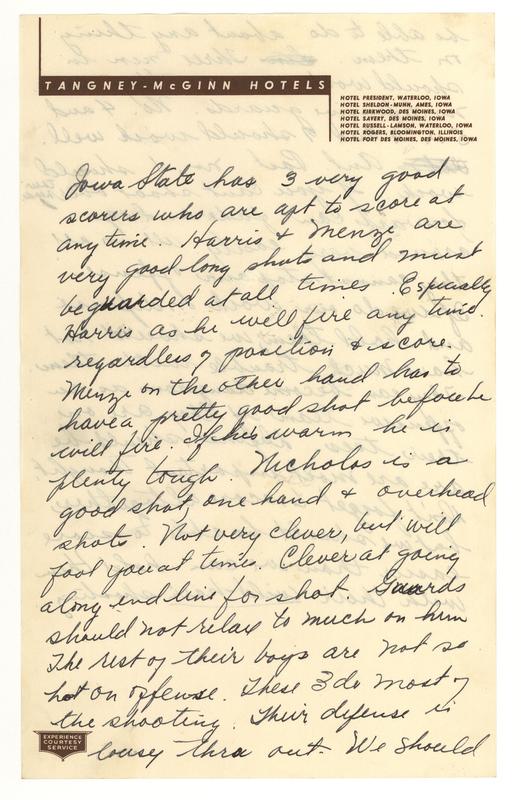 TANGNEY-McGINN HOTELS
HOTEL PRESIDENT, WATERLOO, IOWA
HOTEL SHELDON-MUNN, AMES, IOWA
HOTEL KIRKWOOD, DES MOINES, IOWA
HOTEL SAVERY, DES MOINES, IOWA
HOTEL RUSSELL-LAMSON, WATERLOO, IOWA
HOTEL ROGERS, BLOOMINGTON, ILLINOIS
HOTEL FORT DES MOINES, DES MOINES, IOWA
Iowa State has 3 very good
scorers who are apt to score at
anytime. Harris & Menze are
very good long shots and must
be guarded at all times. Especially
Harris as he will fire any time.
regardless of position & score.
Menze on the other hand has to
have a pretty good shot before he
will fire. If he's warm he is
plenty tough. Nicholas is a
good shot, one hand & overhead
shots. Not very clever, but will
fool you at times. Clever at going
along end line for shot. Guards
should not relax to much on him
The rest of their boys are not so
hot on offense. These 3 do most of
the shooting. Their defense is
lousy thru out. We should
EXPERIENCE
COURTESY
SERVICE